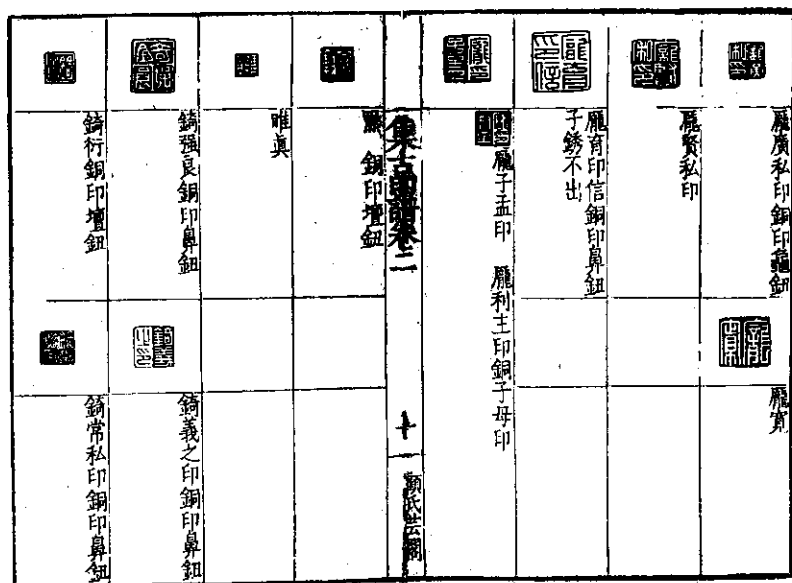 龐廣私印銅印龜鈕
龐寬
龐賢私印
龐育印信銅印鼻鈕
子銹不出
龐子孟印　龐利主印銅子母印
集古印譜卷二
十
顧氏芸閣
銅印壇鈕
唯真
錡强良銅印鼻鈕
錡義之印銅印鼻鈕
錡衍銅印壇鈕
錡常私印銅印鼻鈕